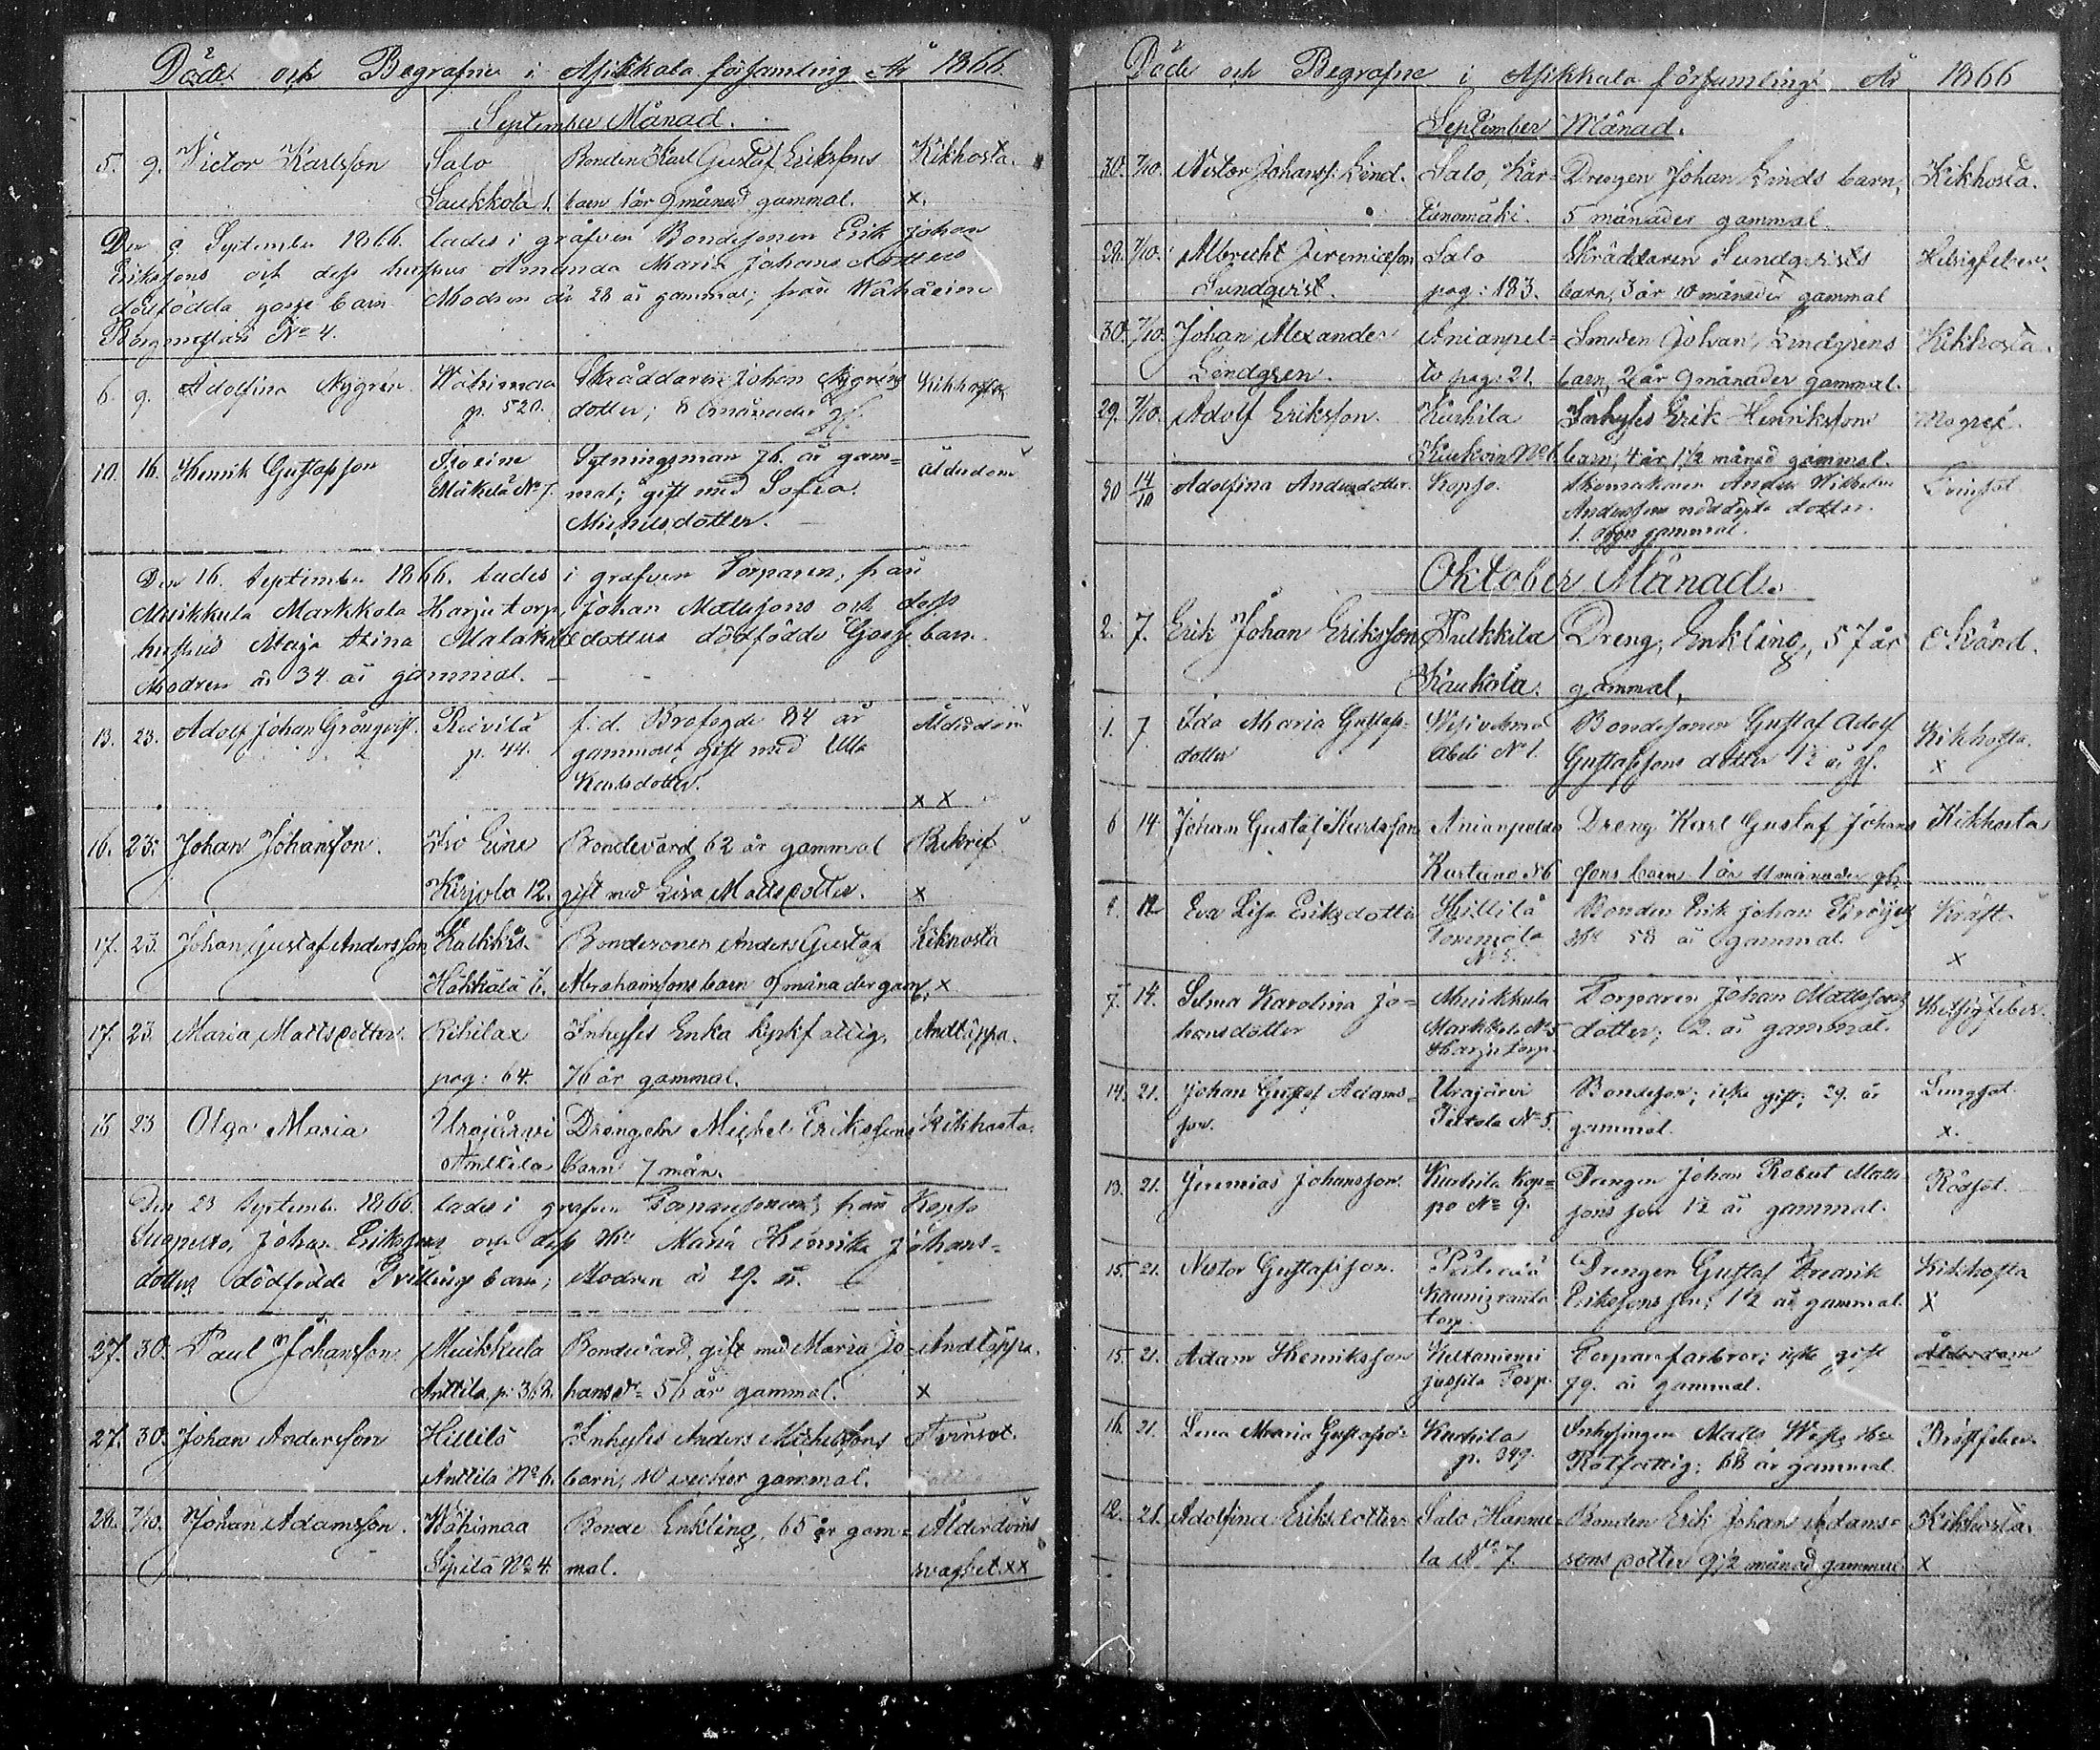 Döde och Begrafne i Asikkala församling År 1866.
September Månad.
5. 9. Victor Karlsson Salo Bonden Karl Gustaf Erikssons Kikhosta.
Saukkola 1. barn 1 år 9 månad gammal. x.
Den 9 September 1866. lades i grafven Bondesonen Erik Johan
Erikssons och dess hustrus Amanda Maria Johansdotters
dödfödda gosse barn Modren är 28 år gammal; från
No 4.
6. 9. Adolfina Nygrén Wähimaa Skräddaren Johan Nygréns Kikhosta
p. 520. dotter; 8 månader gl.
10. 16. Henrik Gustafsson Isoeine Sytningsman 76 år gam= ålderdom
Mäkelä No 7. mal; gift med Sofia
Michelsdotter.
Den 16. September 1866. lades i grafven Torparen, från
Muikkula Markkola Harju torp, Johan Matssons och dess
hustrus Maja Stina Malakiedotters dödfödde Gosse barn.
Modren är 34 år gammal.
13. 23. Adolf Johan Grönqvist. p. 44. f. d. Brofogde 84 år Ålderdom
gammal, gift med Ulla
Karlsdotter.
x x
16. 23. Johan Johansson. Iso Eine Bondevärd 62 år gammal
Kirjola 12. gift med Lisa Mattsdotter. x
17. 23. Johan Gustaf Andersson Kalkkis. Bondesonen Anders Gustaf Kikhosta
Häkkälä 6. Abrahamssons barn 9 månader gam. x
17. 23. Maria Mattsdotter. Rihilax Inhyses Enka kyrkfattig, Andtäppa.
pag: 64. 76 år gammal.
16 23 Olga Maria Urajärvi Drängen Michel Erikssons Kikhosta.
Anttila barn 7 mån.
Den 23 September 1866. lades i grafven Torparesonens från Kopso
Johan Erikssons och dess Hu Maria Henrika Johans-
dotters dödfödde Tvillings barn; Modren är 29. år.
27. 30. Paul Johansson. Muikkula Bondevärd gift med Maria Jo- Andtäppa.
Anttila p: 362. hansdr= 56 år gammal. x
27. 30. Johan Andersson Hillilä Inhyses Anders Michelssons Tvinsot.
Anttila No 6. barn, 10 veckor gammal.
28. 7/10. Johan Adamsson. Wähimaa Bonde Enkling, 65 år gam= Ålderdoms
Sipilä No 4. mal. svaghet. xx
Döde och Begrafne i Asikkala församling År 1866
September Månad.
30. 7/10. Nestor Johanss: Lind. Salo, Kär= Drengen Johan Linds barn, Kikhosta.
5 månader gammal.
28. 7/10. Albrecht Jeremiasson Salo Skräddaren Sundqvists Hetsigfeber.
Sundqvist. pag: 183. barn, 3 år 10 månader gammal
30. 7/10. Johan Alexander Anianpel= Smeden Johan Lindgrens Kikhosta.
Lindgren. to pag: 21. barn, 2 år 9 månader gammal.
29. 7/10. Adolf Eriksson. Kurhila Inhyses Erik Henrikssons Magref.
No 6. barn, 4 år, 1 1/2 månad gammal.
30 14/10 Adolfina Andersdotter. Kopso. Skomakaren Anders Wilhelm
Anderssons nöddöpta dotter.
1. dygn gammal.
Oktober Månad.
2. 7. Erik Johan Eriksson Pulkkila Dreng, Enkling, 57 år Okänd.
Kaukola. gammal.
1. 7 Ida Maria Gustafs- Wesivehmaa Bondesonen Gustaf Adolf Kikhosta.
dotter No 1. Gustafssons dotter 1 1/2 år gl. x
6 14 Johan Gustaf Karlsson Anianpelto Dreng Karl Gustaf Johans Kikhosta
Kartano No 6 sons barn 1 år 11 månader gl.
12 Eva Lisa Eriksdotter Hillilä Bonden Erik Johan Kräft.
Hu 58 år gammal.
No 5. x
7. 14. Selma Karolina Jo= Muikkula Torparen Johan Matssons Hetsigfeber.
hansdotter Markkola No 5 dotter; 2. år gammal.
Harju torp.
14. 21. Johan Gustaf Adams= Urajärvi Bondeson; icke gift; 29. år Lungsot.
son. No 5. gammal. x.
13. 21. Jeremias Johansson. Kurhila Kop= Drengen Johan Robert Matts Rödsot.
po No 9. sons son 1 1/2 år gammal.
15. 21. Nestor Gustafsson. Drengen Gustaf Fredrik Kikhosta
Kaunisranta Erikssons son; 1 1/2 år gammal. x
torp.
15. 21. Adam Henriksson Keltaniemi Torpare farbror; icke gift Ålderdom
Jussila Torp. 79. år gammal.
16. 21. Lena Maria Gustafsd= Kurhila Inhysingen Matts Hu Bröstfeber
p. 349. Rotfattig; 68 år gammal.
12. 21. Adolfina Eriksdotter Salo Hannu= Bonden Erik Johan Adams= Kikhosta.
la No 7. sons dotter 9 1/2 månad gammal x